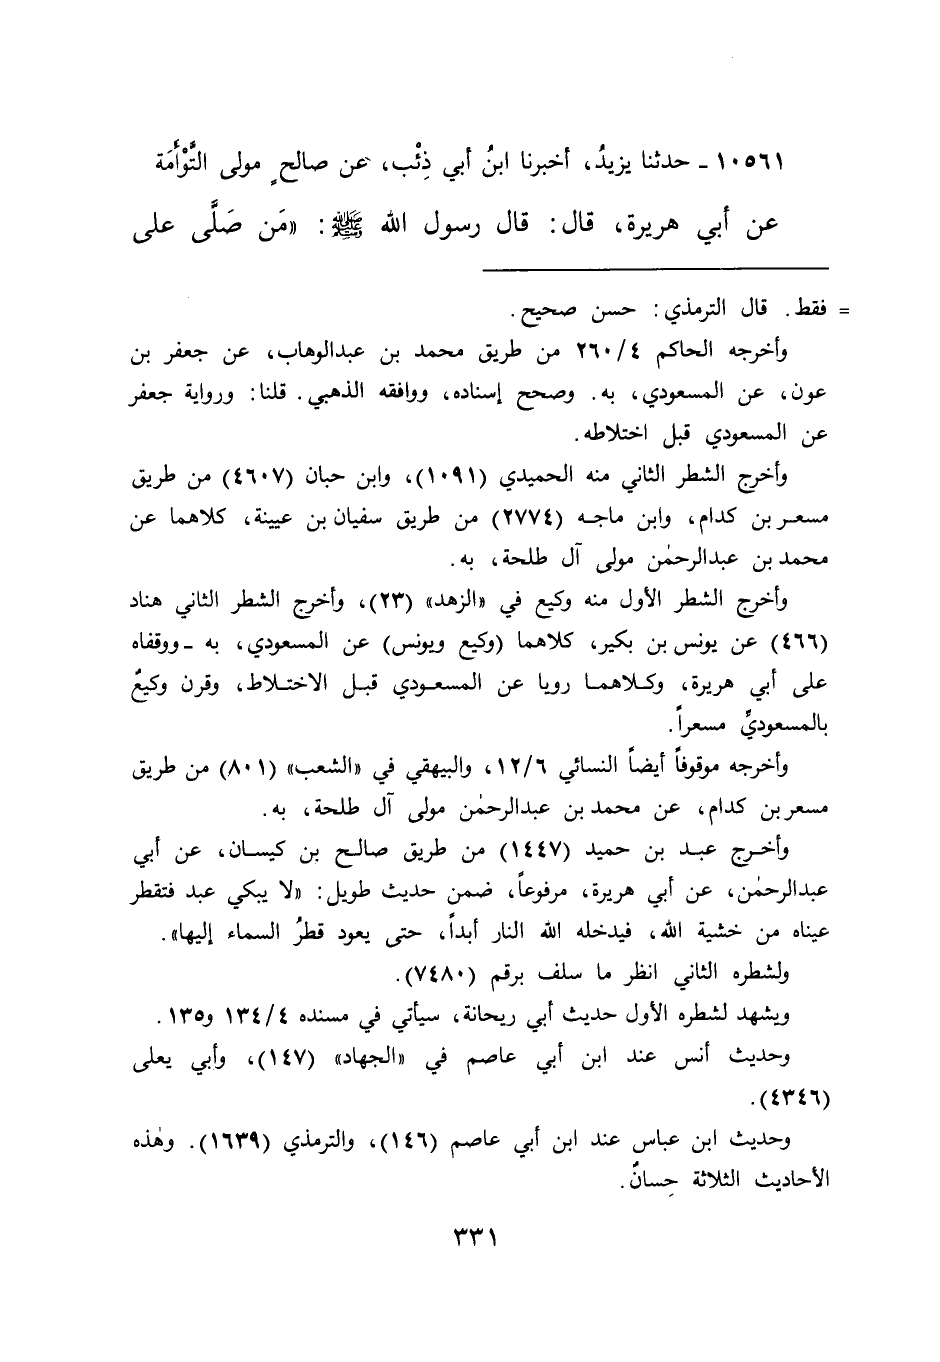 ١٠٥٦١ - حدثنا يزيدُ، أخبرنا ابنُ أبي ذِئْب، عن صالحٍ مولى التَّوْأَمَة
عن أبي هريرة، قال: قال رسول الله ﷺ: «مَن صَلَّى على
= فقط. قال الترمذي: حسن صحيح.
وأخرجه الحاكم ٢٦٠/٤ من طريق محمد بن عبدالوهاب، عن جعفر بن
عون، عن المسعودي، به. وصحح إسناده، ووافقه الذهبي. قلنا: ورواية جعفر
عن المسعودي قبل اختلاطه.
وأخرج الشطر الثاني منه الحميدي (١٠٩١)، وابن حبان (٤٦٠٧) من طريق
مسعر بن كدام، وابن ماجه (٢٧٧٤) من طريق سفيان بن عيينة، كلاهما عن
محمد بن عبدالرحمٰن مولى آل طلحة، به.
وأخرج الشطر الأول منه وكيع في «الزهد» (٢٣)، وأخرج الشطر الثاني هناد
(٤٦٦) عن يونس بن بكير، كلاهما (وكيع ويونس) عن المسعودي، به - ووقفاه
على أبي هريرة، وكلاهما رويا عن المسعودي قبل الاختلاط، وقرن وكيعٌ
بالمسعوديِّ مسعراً.
وأخرجه موقوفاً أيضاً النسائي ١٢/٦، والبيهقي في «الشعب» (٨٠١) من طريق
مسعر بن كدام، عن محمد بن عبدالرحمٰن مولى آل طلحة، به.
وأخرج عبد بن حميد (١٤٤٧) من طريق صالح بن كيسان، عن أبي
عبدالرحمٰن، عن أبي هريرة، مرفوعاً، ضمن حديث طويل: «لا يبكي عبد فتقطر
عيناه من خشية الله، فيدخله الله النار أبداً، حتى يعود قطرُ السماء إليها».
ولشطره الثاني انظر ما سلف برقم (٧٤٨٠).
ويشهد لشطره الأول حديث أبي ريحانة، سيأتي في مسنده ١٣٤/٤ و١٣٥.
وحديث أنس عند ابن أبي عاصم في «الجهاد» (١٤٧)، وأبي يعلى
(٤٣٤٦).
وحديث ابن عباس عند ابن أبي عاصم (١٤٦)، والترمذي (١٦٣٩). وهٰذه
الأحاديث الثلاثة حِسانٌ.
٣٣١